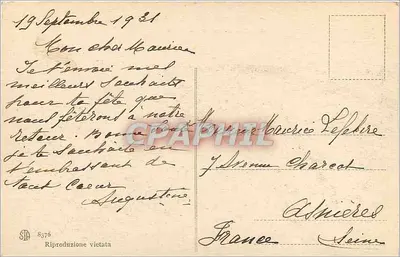 19 Septembre 1931
Mon cher Maurice
Je t'envoie mes
meilleurs souhaits
pour ta fête que
nous fêterons à notre
retour. Bonne
je te souhaite en
t'embrassant de
tout Coeur
Augustine
Maurice Lefebvre
7 Avenue Charcot
Asnières
Seine
France
CPAPHIL
STA 8376
Riproduzione vietata